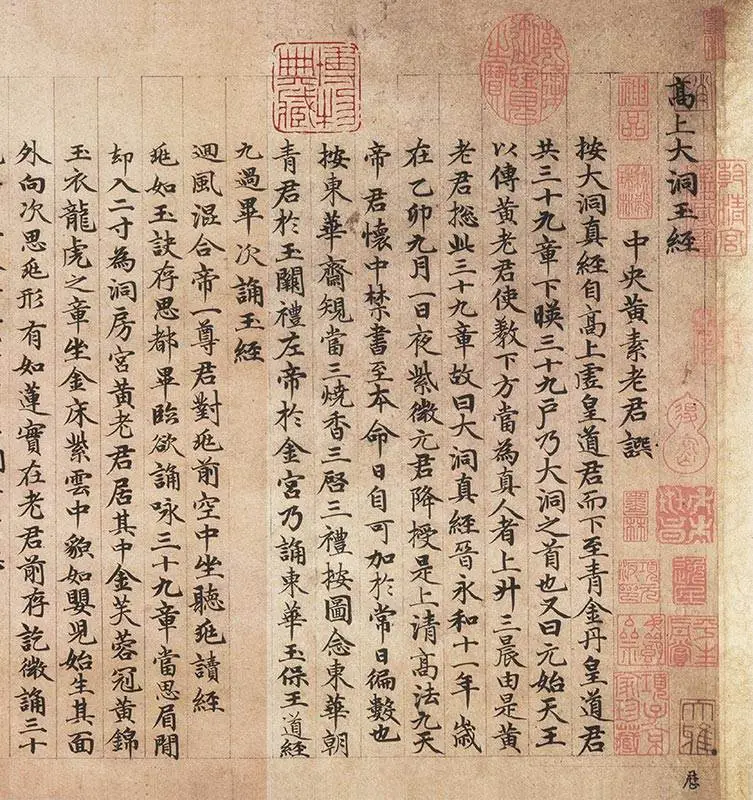 高上大洞玉經
中央黃素老君譔
按大洞真經自高上虛皇道君而下至青金丹皇道君
共三十九章下暎三十九户乃大洞之首也又曰元始天王
以傳黃老君使教下方當為真人者上升三晨由是黃
老君捴此三十九章故曰大洞真經晉永和十一年歲
在乙卯九月一日夜紫微元君降授是上清高法九天
帝君懷中禁書至本命日自可加於常日徧數也
按東華齋䂓當三燒香三啓三禮按圖念東華朝
青君於玉闕禮左帝於金宮乃誦東華玉保王道經
九過畢次誦玉經
廻風混合帝一尊君對兆前空中坐聽兆讀經
兆如玉訣存思都畢臨欲誦咏三十九章當思眉間
却入二寸為洞房宮黃老君居其中金芙蓉冠黃錦
玉衣龍虎之章坐金床紫雲中貌如嬰兒始生其面
外向次思兆形有如蓮實在老君前存訖微誦三十
博物典藏
乾隆御覽之寶
神品